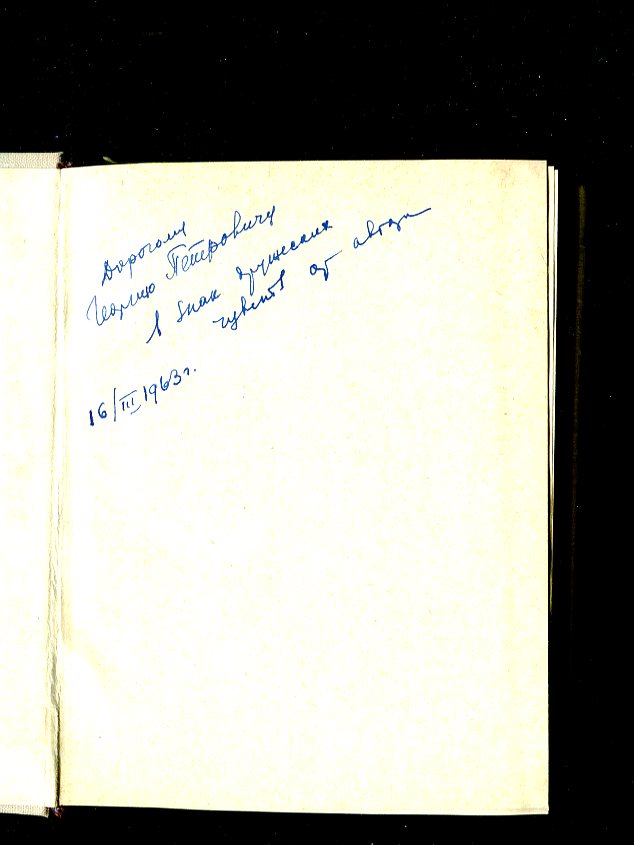 Дорогому
Георгию Петровичу
в знак дружеских
чувств от автора
16/III 1963 г.